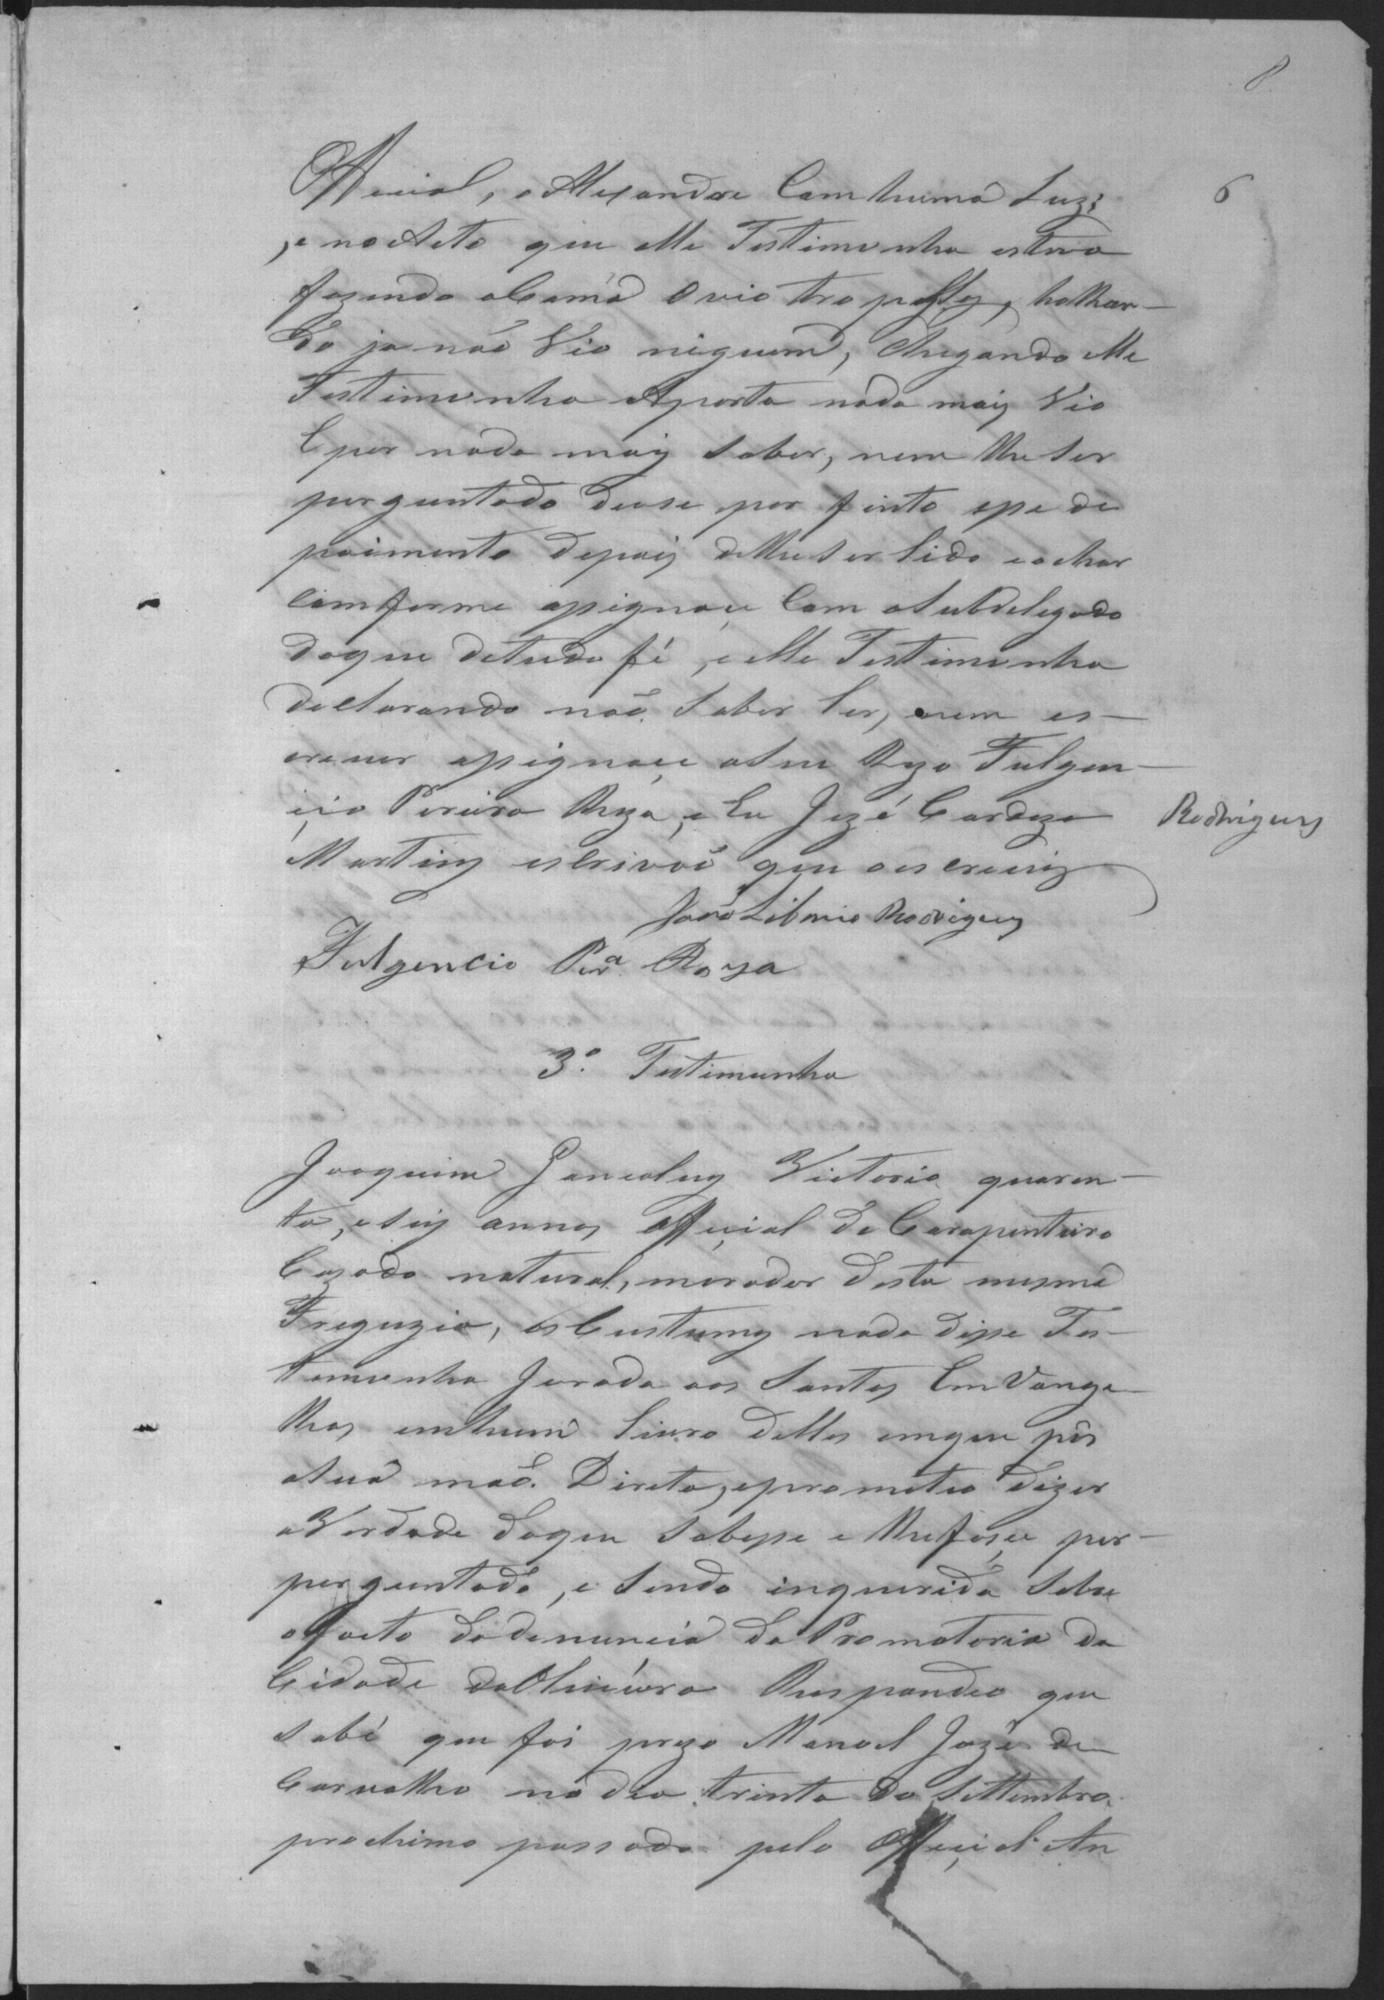 8
6
Official, e Alexandre Com huma Luz;
, e no Acto que elle Testimunha estava
fazendo a Cama Ouvio tropellez, holhan-
do ja naõ Vio niguem, Chegando elle
Testimunha aporta nada maiz Vio
E por nada maiz saber, nem lhe ser
perguntado deose por finto esse de
poimento depoiz de lhe ser lido e achar
comforme assignou Com o Subdelegado
do que de tudo fé, e elle Testimunha
declarando naõ saber ler, nem es-
crever assignou a seu Rogo Fulgen-
cio Pereira Roza, e Eu Jozé Cardozo
Rodrigues
Martins escrivaõ que o escreviz
João Libanio Rodrigues
Fulgencio Per.ª Roza
3.º Testimunha
Joaquim Gonçalvez Victorio quaren-
ta, e seiz annos official de Carapenteiro
Cazado natural, morador desta mesma
Freguzia, os Custumes nada disse Tes-
temunha Jurada aos Santos Em Vange-
lhos em hum livro delles em que pôs
a sua maõ Direta, e prometeo dizer
a Verdade do que Sabesse e lhe fosse per-
perguntado, e sendo inquerida Sobre
o facto da denuncia da Promotoria da
Cidade da Oliveira Respondeo que
sabé que foi prezo Manoel Jozé de
Carvalho no dia trinta de Settembro
prochimo passado pelo Official An